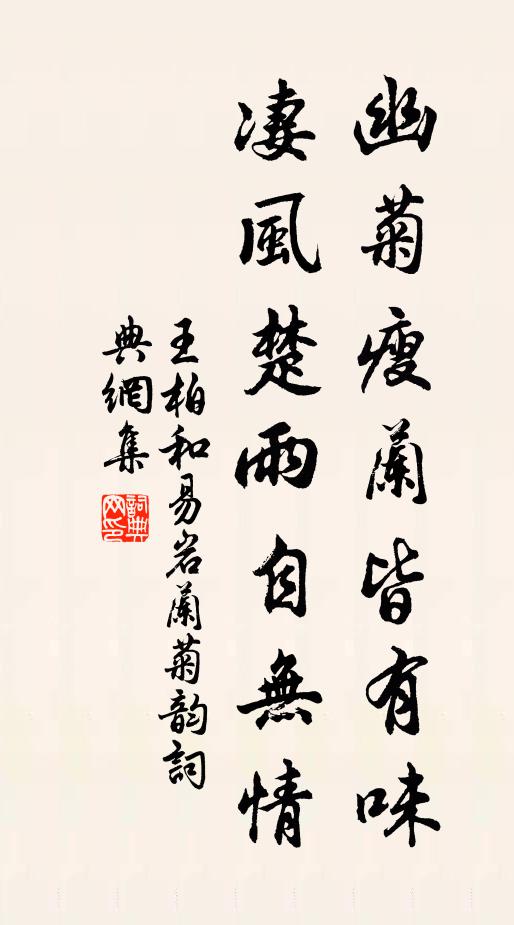 幽菊瘦蘭皆有味
凄風楚雨自無情
王柏和易岩蘭菊韵詞
典網集
詞典
网印